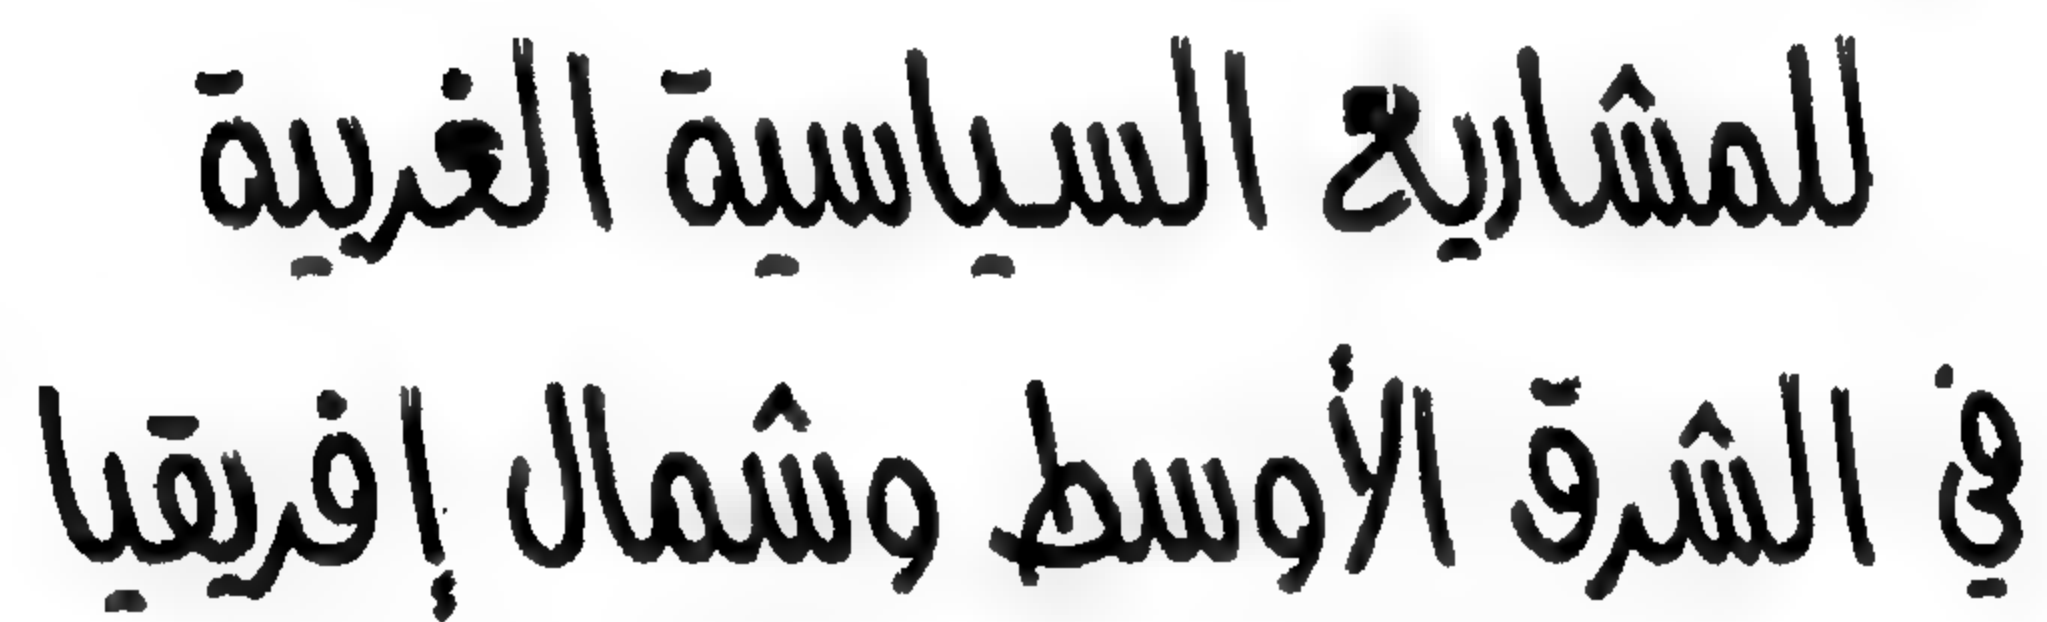 للمشاريع السياسية الغربية
في الشرق الأوسط وشمال إفريقيا